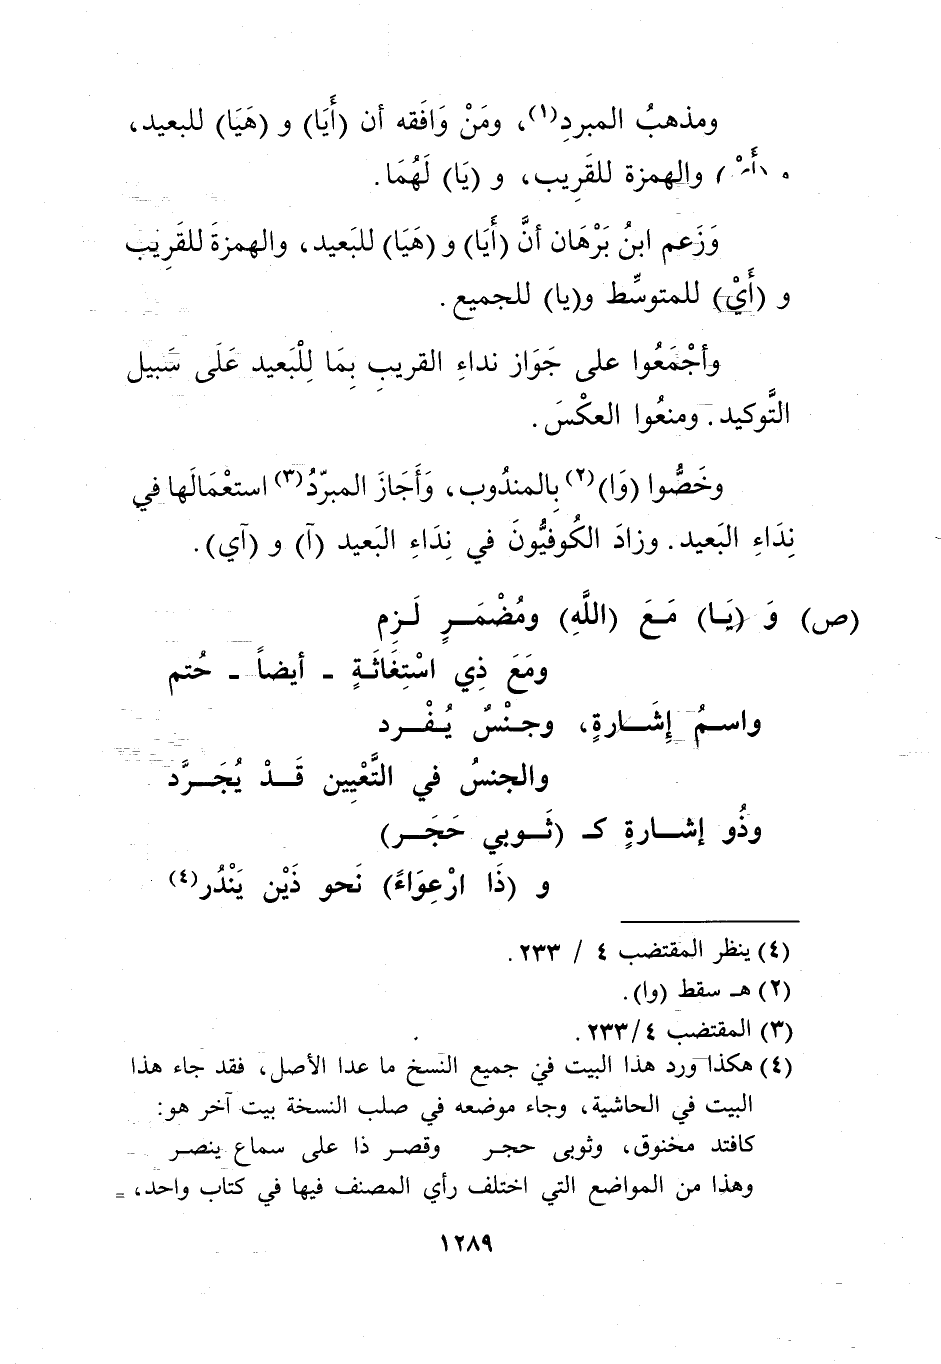 ومذهبُ المبردِ(١)، ومَنْ وَافَقه أن (أَيَا) و (هَيَا) للبعيد،
و (أَيْ) والهمزة للقَرِيب، و (يَا) لَهُمَا.
وَزَعم ابنُ بَرْهَان أنَّ (أَيَا) و (هَيَا) للبَعيد، والهمزةَ للقَرِيْب
و (أَيْ) للمتوسِّط و(يا) للجميع.
وأجْمَعُوا على جَوَاز نداءِ القريبِ بِمَا لِلْبَعيد عَلَى سَبيل
التَّوكيد. ومنعُوا العكْسَ.
وخَصُّوا (وَا)(٢) بِالمندُوب، وَأَجَازَ المبرّدُ(٣) استعْمَالَها في
نِدَاءِ البَعيد. وزادَ الكُوفيُّونَ في نِدَاءِ البَعيد (آ) و (آي).
(ص) وَ (يَـا) مَـعَ (اللَّهِ) ومُضْمَـرٍ لَـزِم
ومَعَ ذِي اسْتِغَاثَـةٍ ـ أيضاً ـ حُتم
واسـمُ إِشَـارةٍ، وجـنْسٌ يُـفْـرد
والجنسُ في التَّعْيِين قَـدْ يُجَـرَّد
وذُو إشـارةٍ كـ (ثَـوبي حَجَـر)
و (ذَا ارْعِوَاءً) نَحو ذَيْن يَنْدُر(٤)
(٤) ينظر المقتضب ٤ / ٢٣٣.
(٢) هـ سقط (وا).
(٣) المقتضب ٢٣٣/٤.
(٤) هكذا ورد هذا البيت في جميع النسخ ما عدا الأصل، فقد جاء هذا
البيت في الحاشية، وجاء موضعه في صلب النسخة بيت آخر هو:
كافتد مخنوق، وثوبى حجـر وقصـر ذا على سماع ينصـر
وهذا من المواضع التي اختلف رأي المصنف فيها في كتاب واحد، =
١٢٨٩